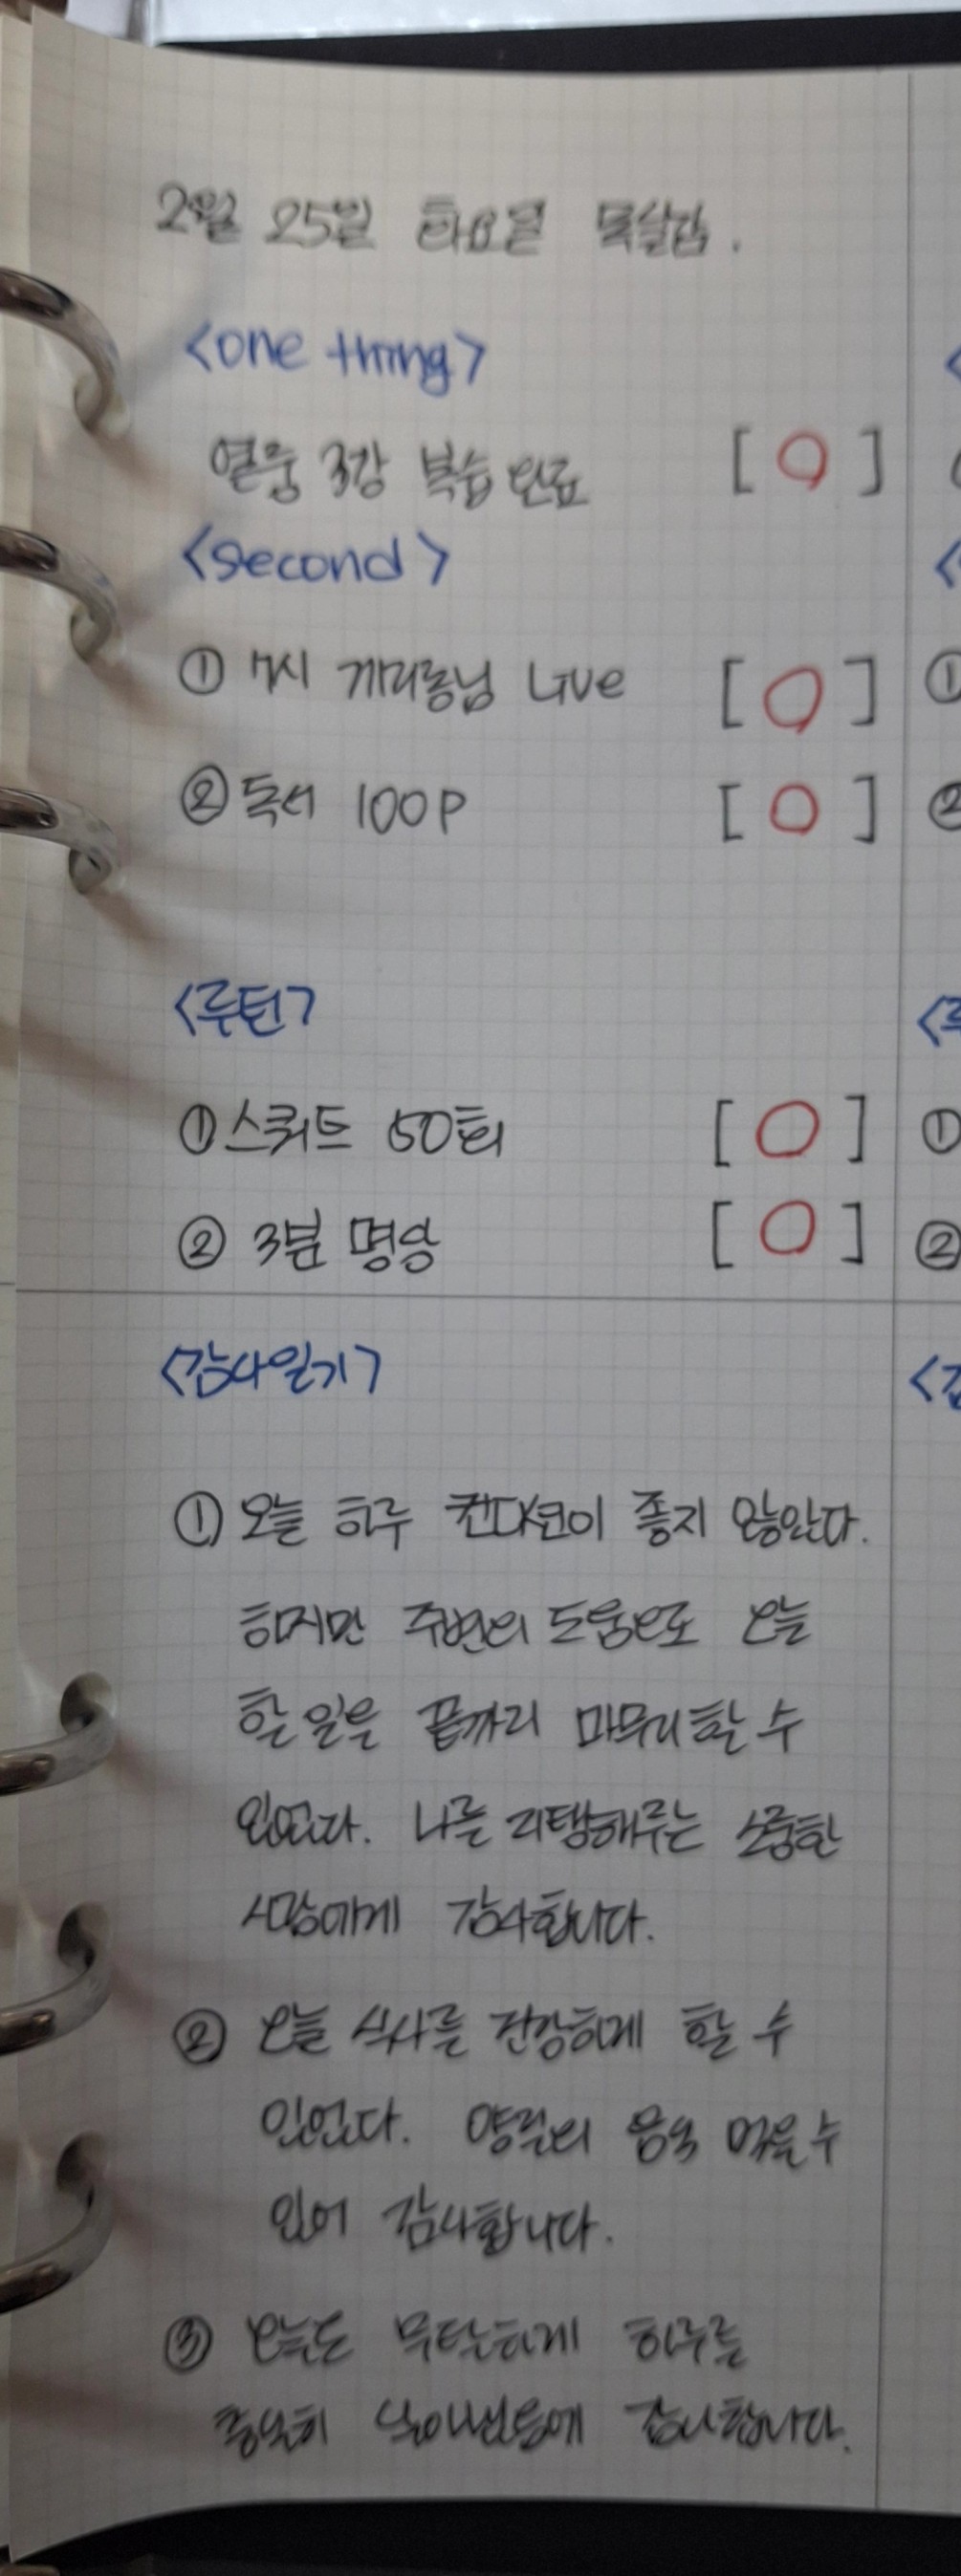 2월 25일 화요일 목실감.
<one thing>
열중 3강 복습 완료 [ O ]
<second>
① 7시 개리롱님 Live [ O ]
② 독서 100P [ O ]
<루틴>
① 스쿼트 50회 [ O ]
② 3분 명상 [ O ]
<감사일기>
① 오늘 하루 컨디션이 좋지 않았다.
하지만 주변의 도움으로 오늘
할 일을 끝까지 마무리할 수
있었다. 나를 지탱해주는 소중한
사람에게 감사합니다.
② 오늘 식사를 건강하게 할 수
있었다. 양질의 음식 먹을 수
있어 감사합니다.
③ 오늘도 무탈하게 하루를
충실히 감사합니다.